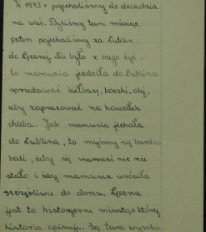 W 1943 r pojechaliśmy do dziadzia
na wieś. Byliśmy tam miesiąc
potem pojechaliśmy za Lublin
do Łęcznej. Nie było z czego żyć
to mamusia jeździła do Lublina
sprzedawać kiełbasy, boczki, itp,
aby zapracować na kawałek
chleba. Jak mamusia jechała
do Lublina, to myśmy są bardzo
bali, żeby się mamusi nic nie
stało i żeby mamusia wróciła
szczęśliwie do domu. Łęczna
jest to historyczne miasto, której
historia opisuje. Są tam wysokie